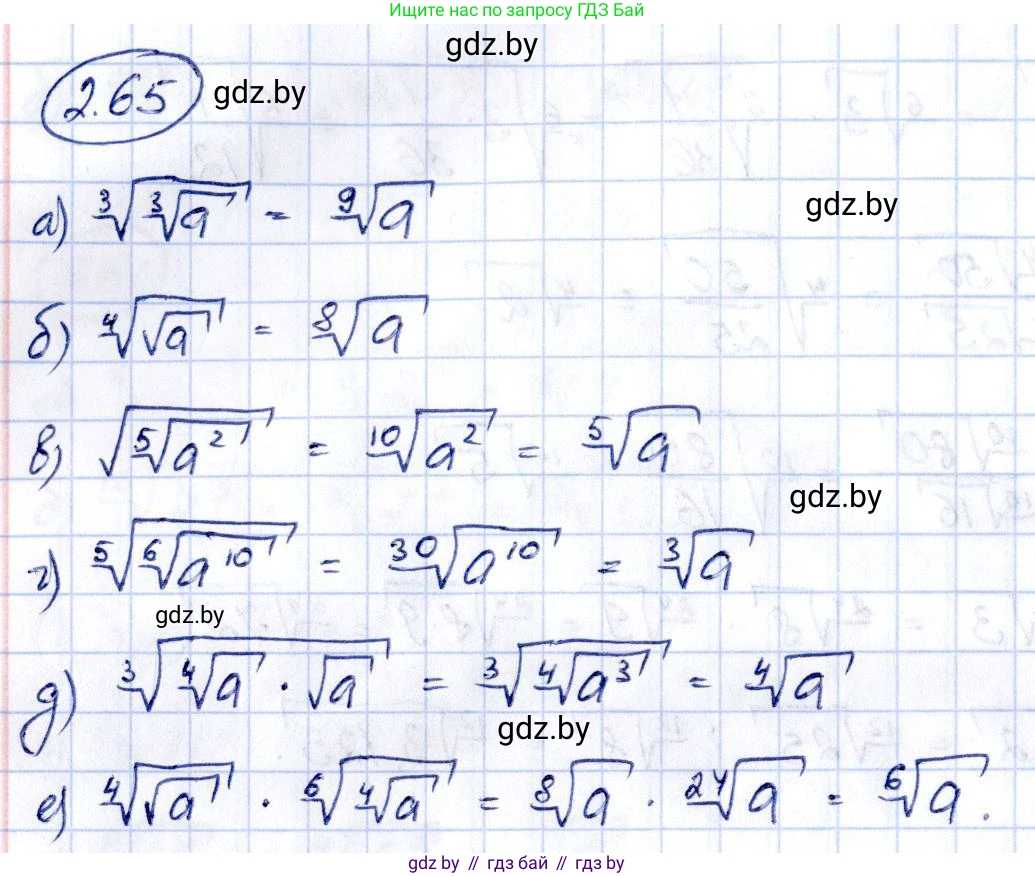 Ищите нас по запросу ГДЗ Бай
gdz.by
2.65 gdz.by
а) ∛(∛a) = ⁹√a
gdz.by
б) ⁴√(√a) = ⁸√a
в) √(⁵√(a²)) = ¹⁰√(a²) = ⁵√a
gdz.by
г) ⁵√(⁶√(a¹⁰)) = ³⁰√(a¹⁰) = ³√a
gdz.by
д) ³√(⁴√a · √a) = ³√(⁴√(a³)) = ⁴√a
gdz.by
е) ⁴√(√a) · ⁶√(⁴√a) = ⁸√a · ²⁴√a = ⁶√a.
gdz.by // гдз бай // гдз by